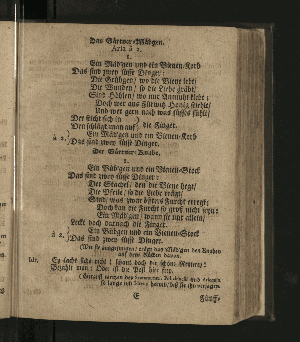 Das Gärtner-Mädgen.
Aria à 2.
1.
Ein Mädgen und ein Bienen-Korb
Das sind zwey süsse Dinger:
Die Grübgen/ wo die Biene lebt/
Die Wunden/ so die Liebe gräbt/
Sind Höhlen/ wo nur Anmuth klebt;
Doch wer aus Fürwitz Honig stiehlt/
Und wer gern nach was süsses fühlt/
Der sticht sich in
Den schlägt man auf) die Finger.
à 2. Ein Mädgen und ein Bienen-Korb
Das sind zwey süsse Dinger.
Der Gärtner-Knabe.
2.
Ein Bübgen und ein Bienen-Stock
Das sind zwey süsse Dinger:
Der Stachel/ den die Biene hegt/
Die Pfeile/ so die Liebe trägt/
Sind, was zwar öfters Furcht erregt;
Doch kan die Furcht so groß nicht seyn:
Ein Mädgen/ wann sie nur allein/
Leckt doch darnach die Finger.
à 2. Ein Bübgen und ein Bienen-Stock
Das sind zwey süsse Dinger.
(Wie sie ausgesungen/ trägt das Mädgen den Knaben
auf dem Rücken davon.
Es lacht sichs recht! schaut doch die schöne Reuterey!
Bezahlt man:
so lange mit herum, biß sie ihn verjagen.
E